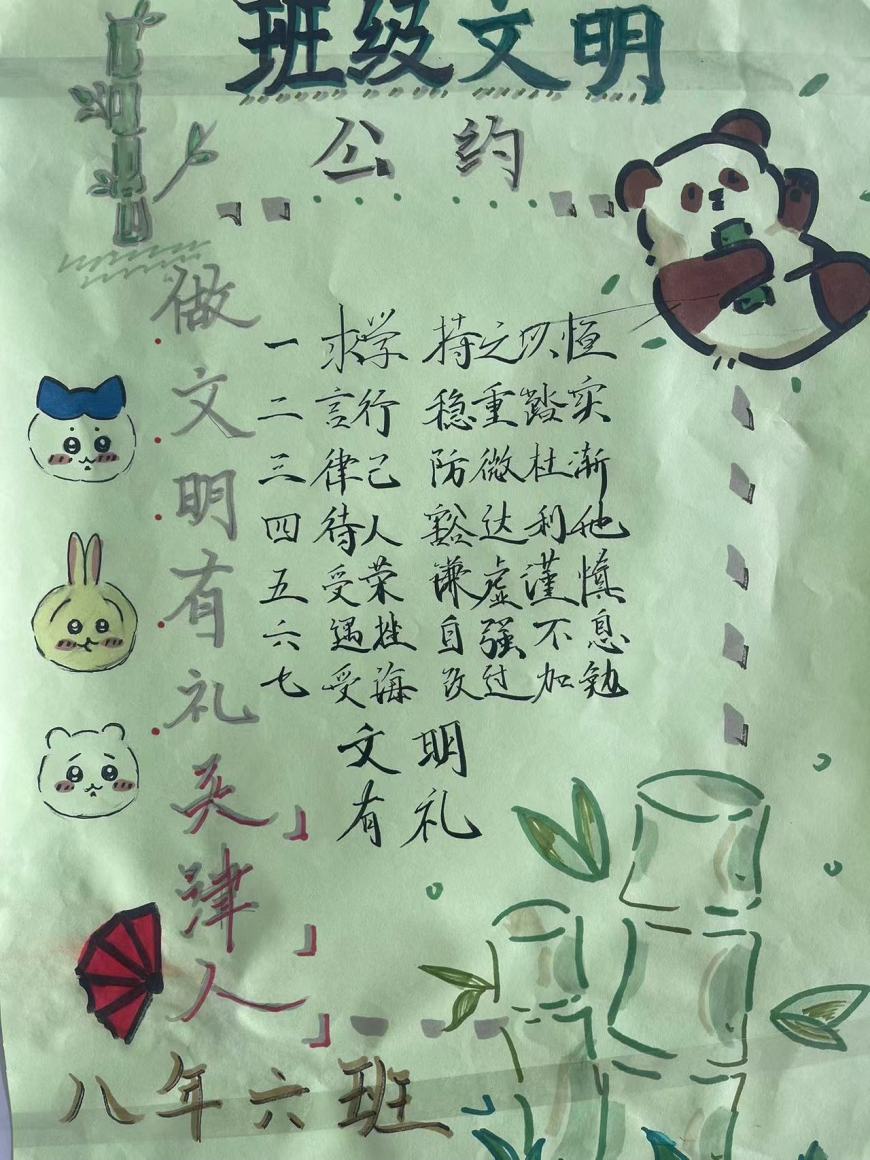 班级文明
公约
做文明有礼天津人
一 求学 持之以恒
二 言行 稳重踏实
三 律己 防微杜渐
四 待人 豁达利他
五 受荣 谦虚谨慎
六 遇挫 自强不息
七 受海 改过加勉
文明
有礼
八年六班